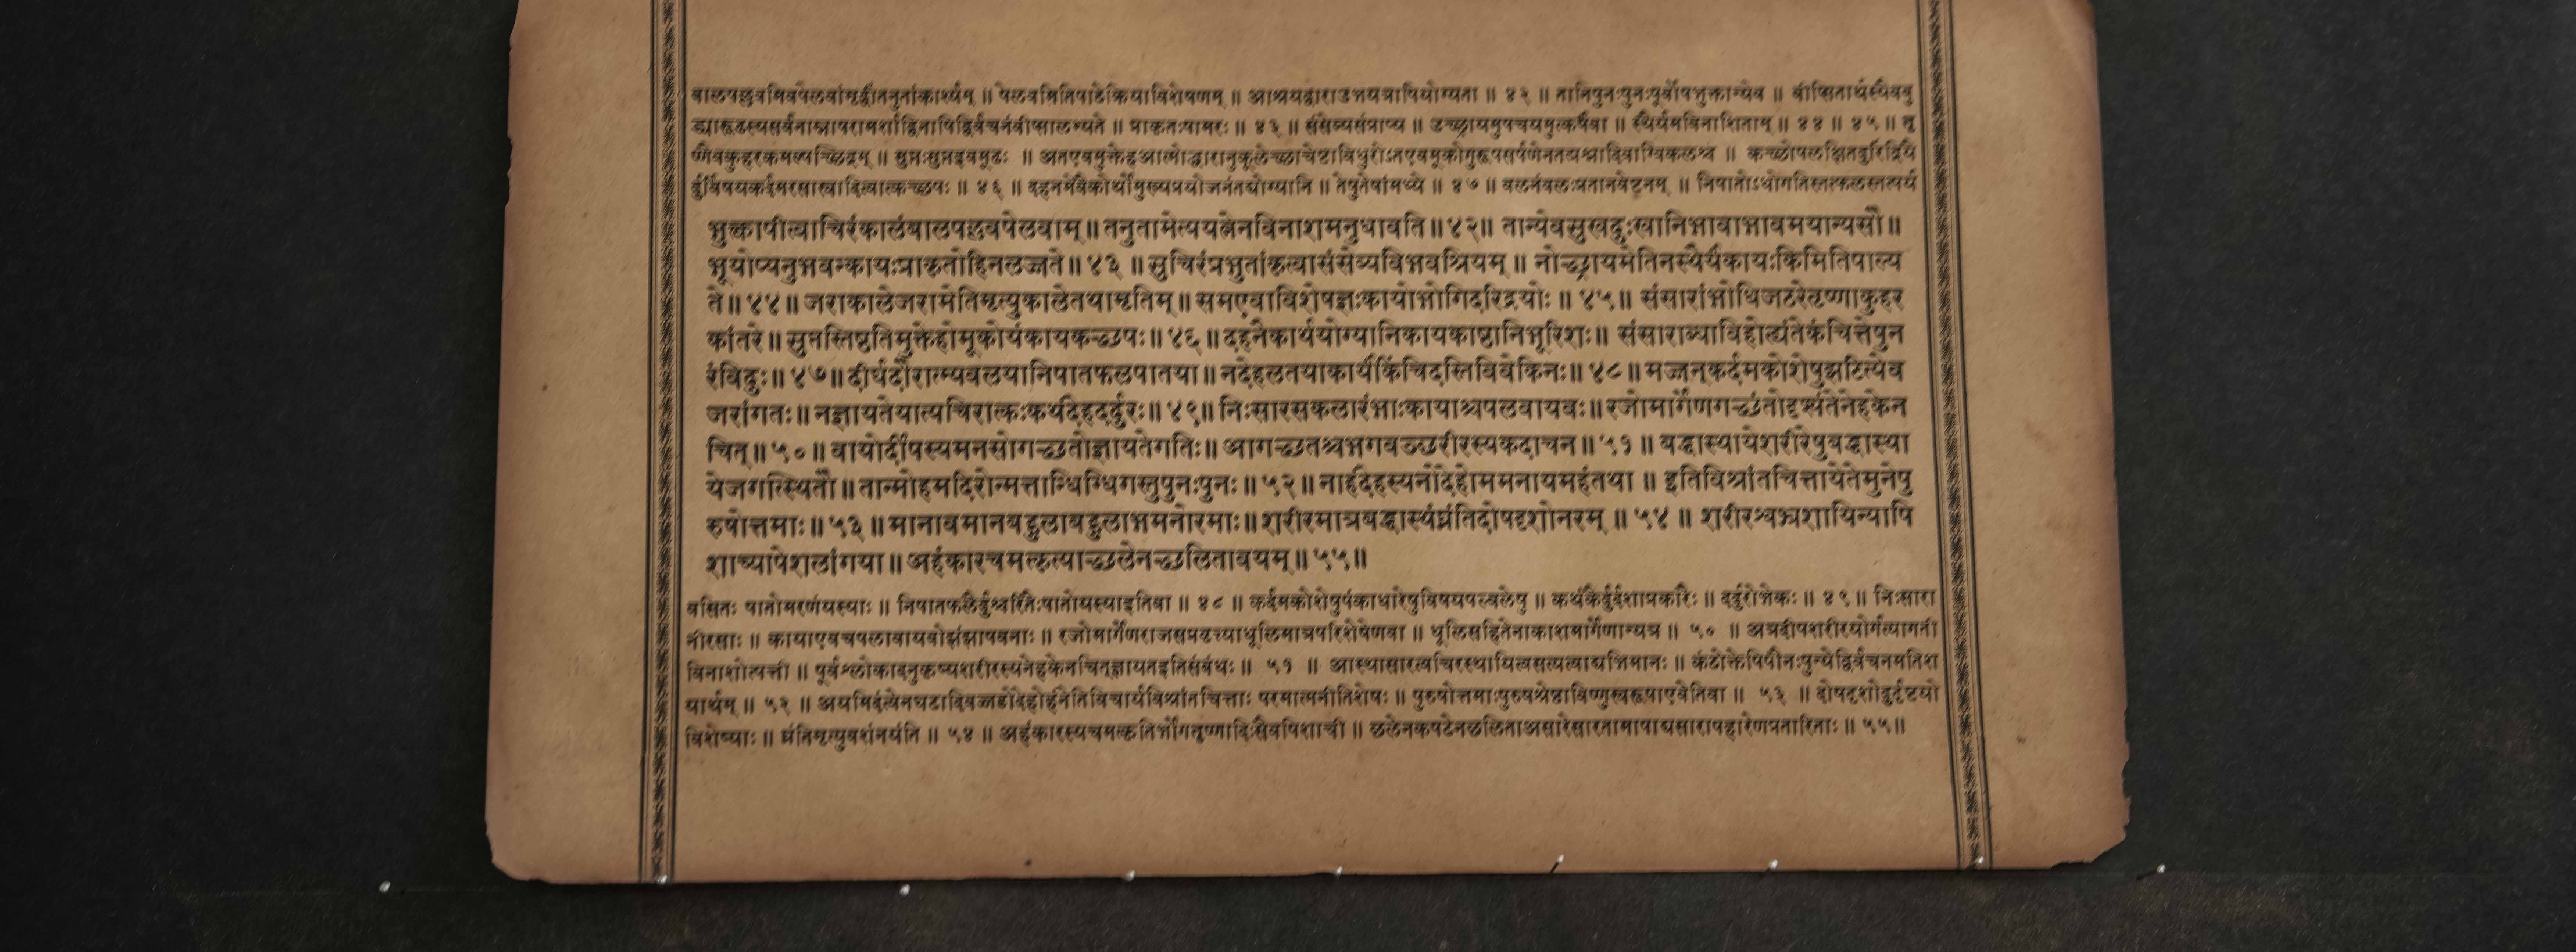 बालपल्लवमिवपेलवांमृद्वींतनुतांकार्श्यम् ॥ पेलवमितिपाठेक्रियाविशेषणम् ॥ आश्रयद्वाराउभयत्रापियोग्यता ॥ ४२ ॥ तानिपुनःपुनःपूर्वोपभुक्तान्येव ॥ वीप्सितार्थस्यैवबु
द्ध्यारूढस्यसर्वनाम्नापरामर्शाद्विनापिद्विर्वचनंवीप्सालभ्यते ॥ प्राकृतःपामरः ॥ ४३ ॥ संसेव्यसंप्राप्य ॥ उच्छ्रायमुपचयमुत्कर्षंवा ॥ स्थैर्यमविनाशिताम् ॥ ४४ ॥ ४५ ॥ तृ
ष्णैवकुहरकमल्पच्छिद्रम् ॥ सुप्तःसुप्तइवमूढः ॥ अतएवमुक्तेहआत्मोद्धारानुकूलेच्छाचेष्टाविधुरोऽतएवमूकोगुरूपसर्पणेनतद्यश्नादिवाग्विकलश्च ॥ कच्छोपलक्षितदुरिंद्रियै
र्दुर्विषयकर्दमरसास्वादित्वात्कच्छपः ॥ ४६ ॥ दहनमेवैकोर्थोमुख्यप्रयोजनंतद्योग्यानि ॥ तेषुतेषांमध्ये ॥ ४७ ॥ वलनंवलःप्रतानवेष्टनम् ॥ निपातोऽधोगतिस्तत्फलस्तत्पर्य
भुक्त्वापीत्वाचिरंकालंबालपल्लवपेलवाम् ॥ तनुतामेत्ययत्नेनविनाशमनुधावति ॥ ४२ ॥ तान्येवसुखदुःखानिभावाभावमयान्यसौ ॥
भूयोप्यनुभवन्कायःप्राकृतोहिनलज्जते ॥ ४३ ॥ सुचिरंप्रभुतांकृत्वासंसेव्यविभवश्रियम् ॥ नोच्छ्रायमेतिनस्थैर्यंकायःकिमितिपाल्य
ते ॥ ४४ ॥ जराकालेजरामेतिमृत्युकालेतथामृतिम् ॥ समएवाविशेषज्ञःकायोभोगिदरिद्रयोः ॥ ४५ ॥ संसारांभोधिजठरेतृष्णाकुहर
कांतरे ॥ सुप्तस्तिष्ठतिमुक्तेहोमूकोयंकायकच्छपः ॥ ४६ ॥ दहनैकार्थयोग्यानिकायकाष्ठानिभूरिशः ॥ संसाराब्धाविहोह्यंतेकंचित्तेषुन
रंविदुः ॥ ४७ ॥ दीर्घदौरात्म्यवलयानिपातफलपातया ॥ नदेहलतयाकार्यंकिंचिदस्तिविवेकिनः ॥ ४८ ॥ मज्जन्कर्दमकोशेषुझटित्येव
जरांगतः ॥ नज्ञायतेयात्यचिरात्कःकथंदेहदर्दुरः ॥ ४९ ॥ निःसारसकलारंभाःकायाश्चपलवायवः ॥ रजोमार्गेणगच्छंतोदृश्यंतेनेहकेन
चित् ॥ ५० ॥ वायोर्दीपस्यमनसोगच्छतोज्ञायतेगतिः ॥ आगच्छतश्चभगवञ्छरीरस्यकदाचन ॥ ५१ ॥ बद्धास्थायेशरीरेषुबद्धास्था
येजगत्स्थितौ ॥ तान्मोहमदिरोन्मत्तान्धिग्धिगस्तुपुनःपुनः ॥ ५२ ॥ नाहंदेहस्यनोदेहोममनायमहंतथा ॥ इतिविश्रांतचित्तायेतेमुनेपु
रुषोत्तमाः ॥ ५३ ॥ मानावमानबहुलाबहुलाभमनोरमाः ॥ शरीरमात्रबद्धास्थंघ्नंतिदोषदृशोनरम् ॥ ५४ ॥ शरीरश्वभ्रशायिन्यापि
शाच्यापेशलांगया ॥ अहंकारचमत्कृत्याच्छलेनच्छलितावयम् ॥ ५५ ॥
वसितः पातोमरणंयस्याः ॥ निपातफलैर्दुश्चरितैःपातोयस्याइतिवा ॥ ४८ ॥ कर्दमकोशेषुपंकाधारेषुविषयपल्वलेषु ॥ कथंकैर्दुर्दशाप्रकारैः ॥ दर्दुरोभेकः ॥ ४९ ॥ निःसारा
नीरसाः ॥ कायाएवचपलावायवोझंझापवनाः ॥ रजोमार्गेणराजसप्रवृत्त्याधूलिमात्रपरिशेषेणवा ॥ धूलिसहितेनाकाशमार्गेणान्यत्र ॥ ५० ॥ अत्रदीपशरीरयोर्गत्यागती
विनाशोत्पत्ती ॥ पूर्वश्लोकादनुकृष्यशरीरस्यनेहकेनचित्ज्ञायतइतिसंबंधः ॥ ५१ ॥ आस्थासारत्वचिरस्थायित्वसत्यत्वाद्यभिमानः ॥ कंठोक्तेपिपौनःपुन्येद्विर्वचनमतिश
यार्थम् ॥ ५२ ॥ अयमिदंत्वेनघटादिवज्जडोदेहोहंनेतिविचार्यविश्रांतचित्ताः परमात्मनीतिशेषः ॥ पुरुषोत्तमाःपुरुषश्रेष्ठाविष्णुस्वरूपाएवेतिवा ॥ ५३ ॥ दोषदृशोदुर्दृष्टयो
विशेष्याः ॥ घ्नंतिमृत्युवशंनयंति ॥ ५४ ॥ अहंकारस्यचमत्कृतिर्भोगतृष्णादिःसैवपिशाची ॥ छलेनकपटेनछलिताअसारेसारतामापाद्यसारापहारेणप्रतारिताः ॥ ५५॥